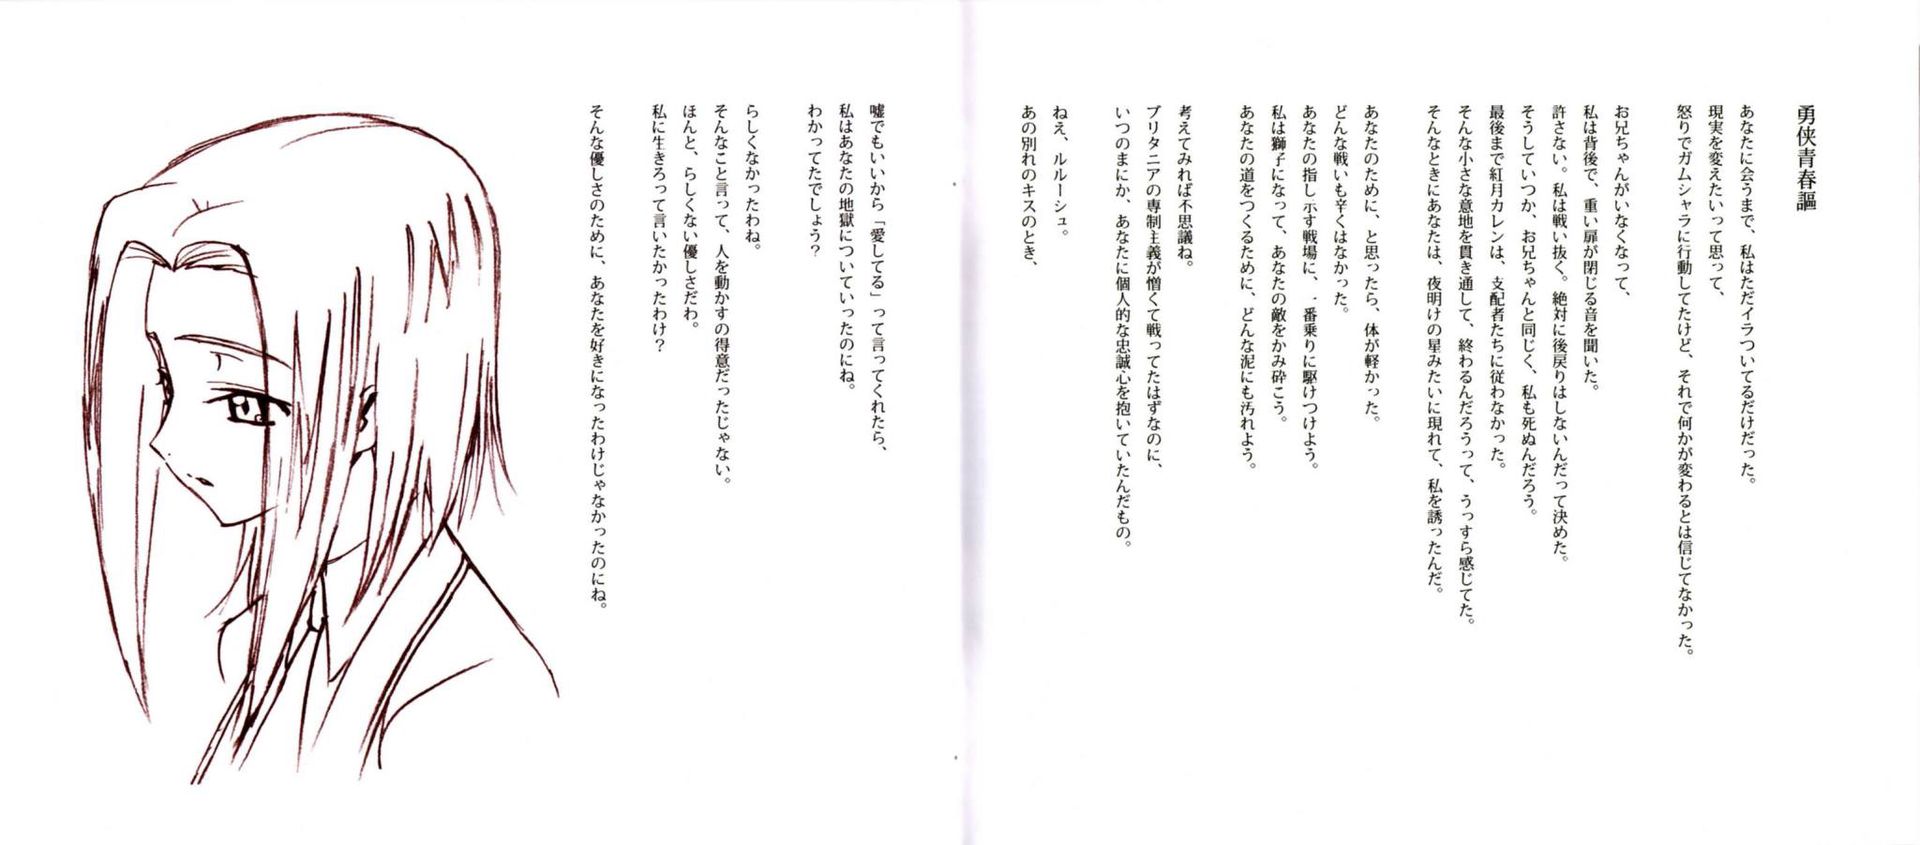 勇侠青春謳
あなたに会うまで、私はただイラついてるだけだった。
現実を変えたいって思って、
怒りでガムシャラに行動してたけど、それで何かが変わるとは信じてなかった。
お兄ちゃんがいなくなって、
私は背後で、重い扉が閉じる音を聞いた。
許さない。私は戦い抜く。絶対に後戻りはしないんだって決めた。
そうしていつか、お兄ちゃんと同じく、私も死ぬんだろう。
最後まで紅月カレンは、支配者たちに従わなかった。
そんな小さな意地を貫き通して、終わるんだろうって、うっすら感じてた。
そんなときにあなたは、夜明けの星みたいに現れて、私を誘ったんだ。
あなたのために、と思ったら、体が軽かった。
どんな戦いも辛くはなかった。
あなたの指し示す戦場に、一番乗りに駆けつけよう。
私は獅子になって、あなたの敵をかみ砕こう。
あなたの道をつくるために、どんな泥にも汚れよう。
考えてみれば不思議ね。
ブリタニアの専制主義が憎くて戦ってたはずなのに、
いつのまにか、あなたに個人的な忠誠心を抱いていたんだもの。
ねえ、ルルーシュ。
あの別れのキスのとき、
嘘でもいいから「愛してる」って言ってくれたら、
私はあなたの地獄についていったのにね。
わかってたでしょう？
らしくなかったわね。
そんなこと言って、人を動かすの得意だったじゃない。
ほんと、らしくない優しさだわ。
私に生きろって言いたかったわけ？
そんな優しさのために、あなたを好きになったわけじゃなかったのにね。